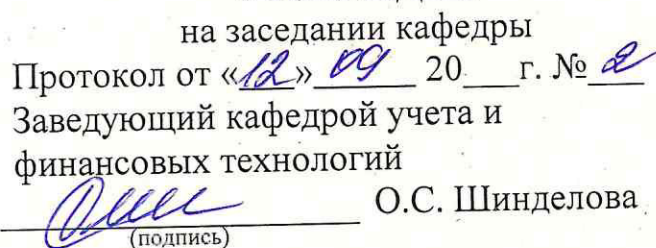 на заседании кафедры
Протокол от «12» 09 20___г. № 2
Заведующий кафедрой учета и
финансовых технологий
О.С. Шинделова
(подпись)